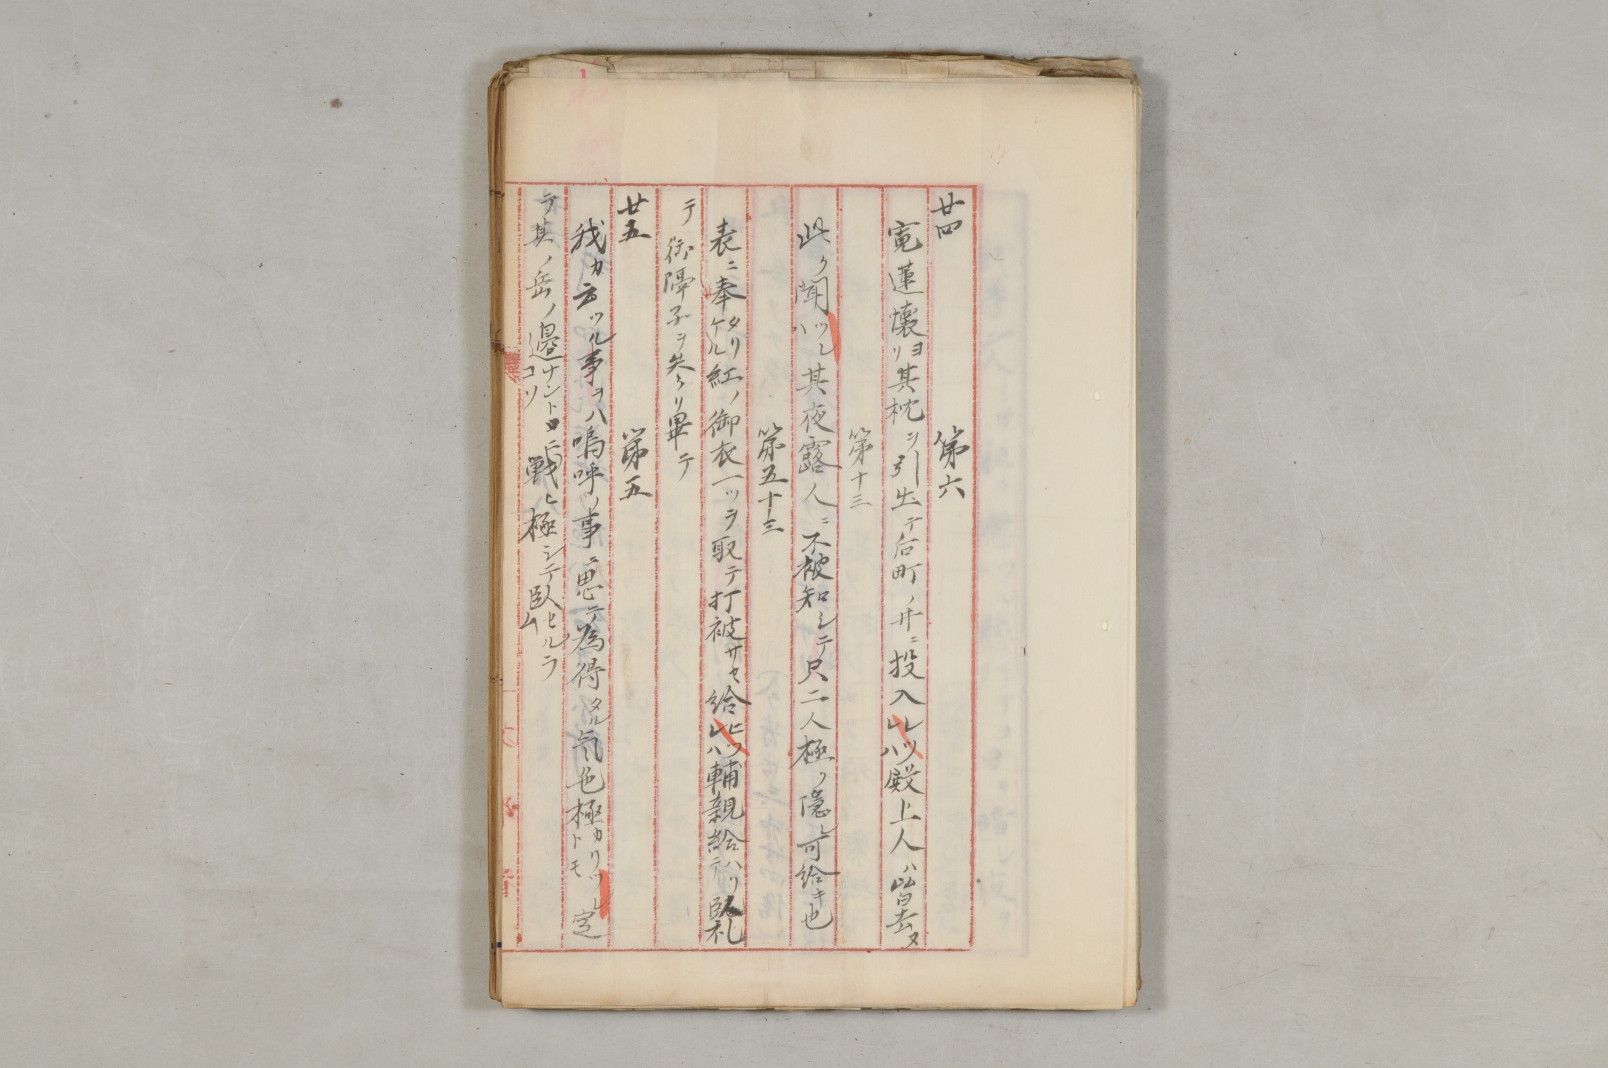 廿四　第六
寛蓮懐ヨリ其枕ヲ引出テ后町ノ井ニ投入レツレハ殿上人ハ皆去ヌ
第十三
此ク聞ツレハ其夜露人ニ不被知シテ只二人極ク隠レ可給キ也
第五十三
表ニ奉タリケル紅ノ御衣一ツヲ取テ打被サセ給ヒツレハ輔親給ハリテ臥礼
テ御障子ヲ参リ畢テ
廿五　第五
我カ云ツル事ヲハ嗚呼ノ事ニ思テ為得タル気色極カリツレトモ定
テ其ノ岳ノ邊ナントニコソ戦ヒ極シテ臥セルラム